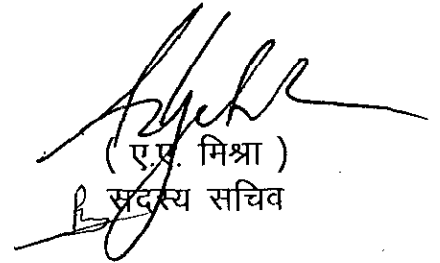 ( ए.ए. मिश्रा )
सदस्य सचिव